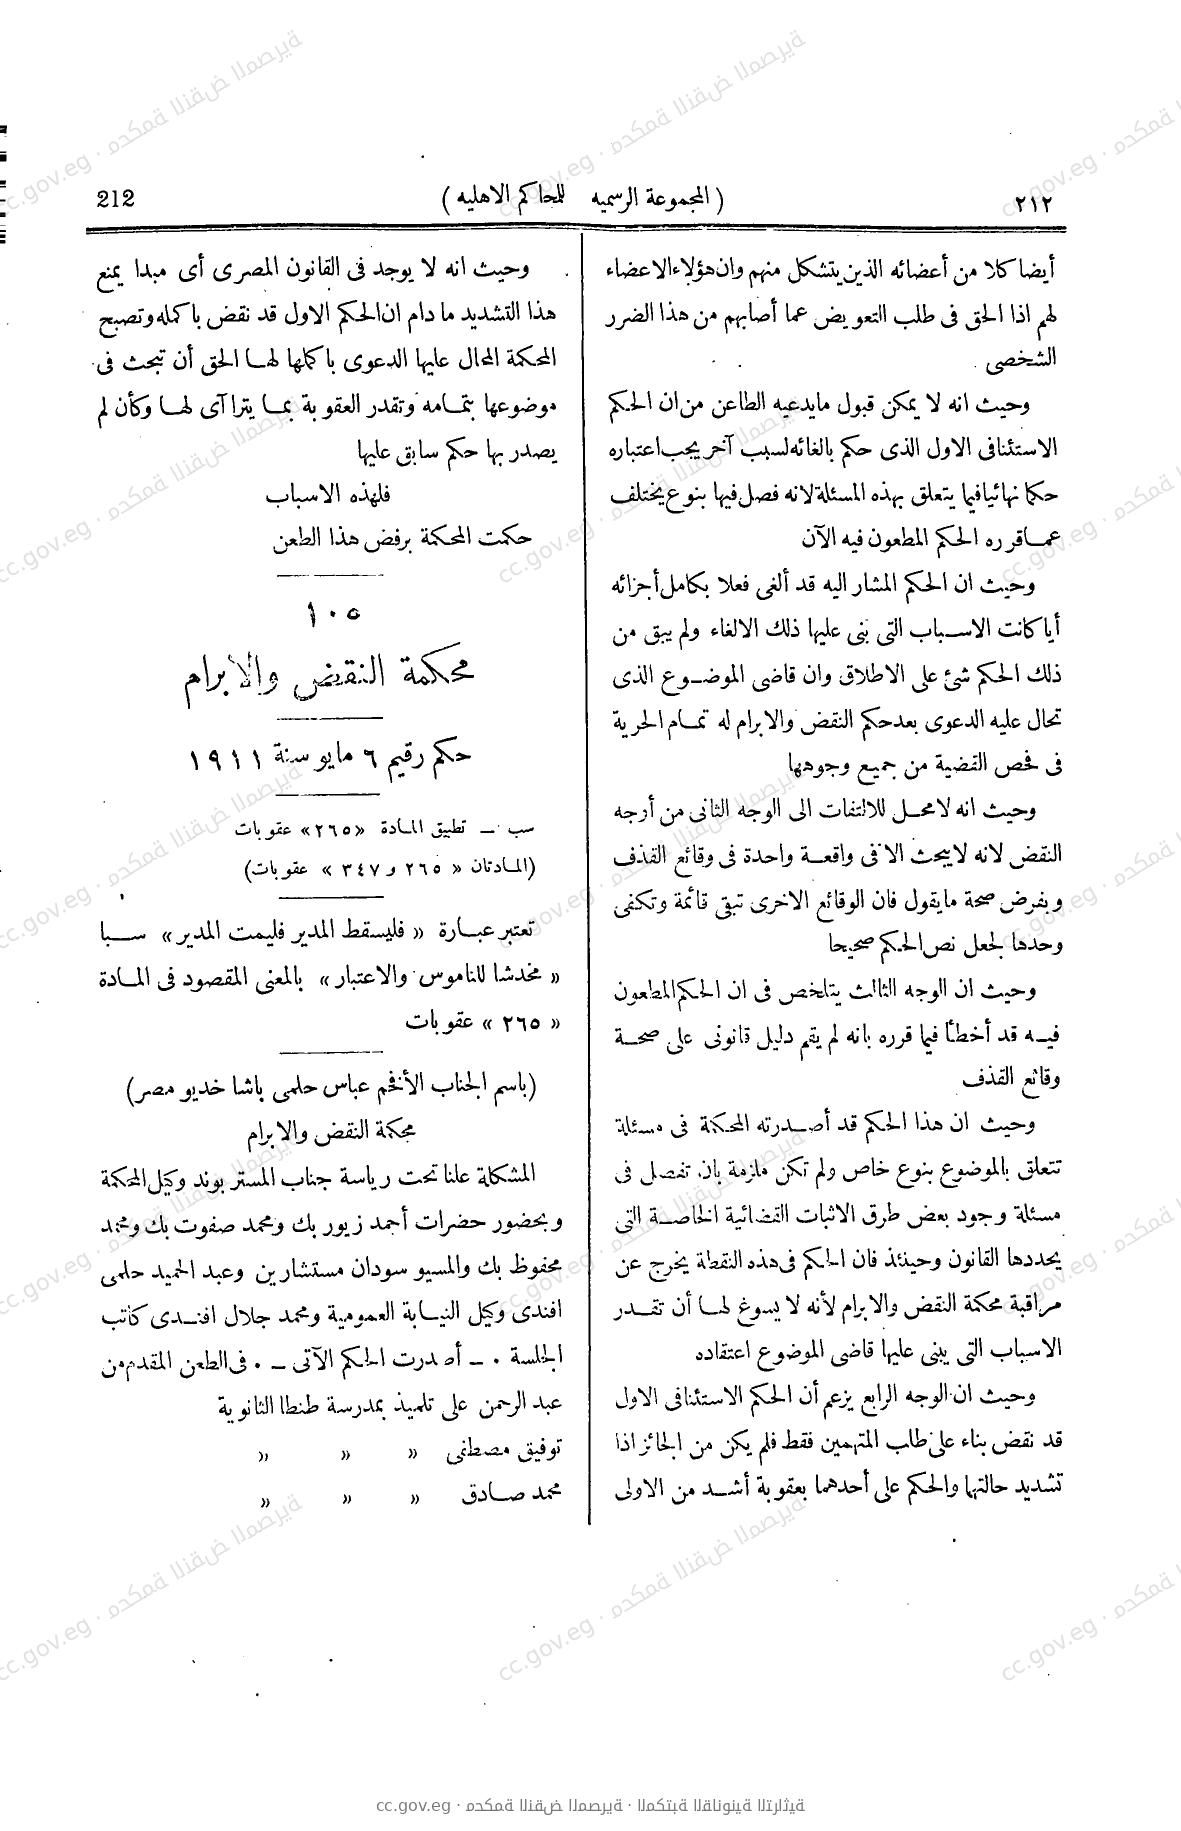 ٢١٢ ( المجموعة الرسميه للمحاكم الاهليه ) 212
أيضا كلا من أعضائه الذين يتشكل منهم وان هؤلاء الاعضاء
لهم اذا الحق فى طلب التعويض عما أصابهم من هذا الضرر
الشخصى
وحيث انه لا يمكن قبول مايدعيه الطاعن من ان الحكم
الاستئنافى الاول الذى حكم بالغائه لسبب آخر يجب اعتباره
حكما نهائيا فيما يتعلق بهذه المسئلة لانه فصل فيها بنوع يختلف
عما قرره الحكم المطعون فيه الآن
وحيث ان الحكم المشار اليه قد ألغى فعلا بكامل أجزائه
أيا كانت الاسباب التى بنى عليها ذلك الالغاء ولم يبق من
ذلك الحكم شئ على الاطلاق وان قاضى الموضوع الذى
تحال عليه الدعوى بعد حكم النقض والابرام له تمام الحرية
فى فحص القضية من جميع وجوهها
وحيث انه لا محل للالتفات الى الوجه الثانى من أرجه
النقض لانه لايبحث الا فى واقعة واحدة فى وقائع القذف
وبفرض صحة مايقول فان الوقائع الاخرى تبقى قائمة وتكفى
وحدها لجعل نص الحكم صحيحا
وحيث ان الوجه الثالث يتلخص فى ان الحكم المطعون
فيه قد أخطأ فيما قرره بانه لم يقم دليل قانونى على صحة
وقائع القذف
وحيث ان هذا الحكم قد أصدرته المحكمة فى مسئلة
تتعلق بالموضوع بنوع خاص ولم تكن ملزمة بان تفصل فى
مسئلة وجود بعض طرق الاثبات القضائية الخاصة التى
يحددها القانون وحينئذ فان الحكم فى هذه النقطة يخرج عن
مراقبة محكمة النقض والابرام لأنه لا يسوغ لها أن تقدر
الاسباب التى يبنى عليها قاضى الموضوع اعتقاده
وحيث ان الوجه الرابع يزعم أن الحكم الاستئنافى الاول
قد نقض بناء على طلب المتهمين فقط فلم يكن من الجائز اذا
تشديد حالتها والحكم على أحدهما بعقوبة أشد من الاولى
وحيث انه لا يوجد فى القانون المصرى أى مبدا يمنع
هذا التشديد ما دام ان الحكم الاول قد نقض باكمله وتصبح
المحكمة المحال عليها الدعوى باكملها لها الحق أن تبحث فى
موضوعها بتمامه وتقدر العقوبة بما يتراآى لها وكأن لم
يصدر بها حكم سابق عليها
فلهذه الاسباب
حكمت المحكمة برفض هذا الطعن
١٠٥
محكمة النقض والابرام
حكم رقيم ٦ مايو سنة ١٩١١
سب – تطبيق المادة «٢٦٥» عقوبات
(المادتان « ٢٦٥ و ٣٤٧ » عقوبات)
تعتبر عبارة « فليسقط المدير فليمت المدير » سبا
« مخدشا للناموس والاعتبار » بالمعنى المقصود فى المادة
« ٢٦٥ » عقوبات
(باسم الجناب الأفخم عباس حلمى باشا خديو مصر)
محكمة النقض والابرام
المشكلة علنا تحت رياسة جناب المستر بوند وكيل المحكمة
وبحضور حضرات أحمد زيور بك ومحمد صفوت بك ومحمد
محفوظ بك والمسيو سودان مستشارين وعبد الحميد حلمى
افندى وكيل النيابة العمومية ومحمد جلال افندى كاتب
الجلسة . – أصدرت الحكم الآتى – . فى الطعن المقدم من
عبد الرحمن على تلميذ بمدرسة طنطا الثانوية
توفيق مصطفى » » »
محمد صادق » » »
cc.gov.eg · محكمة النقض المصرية · المكتبة القانونية التراثية